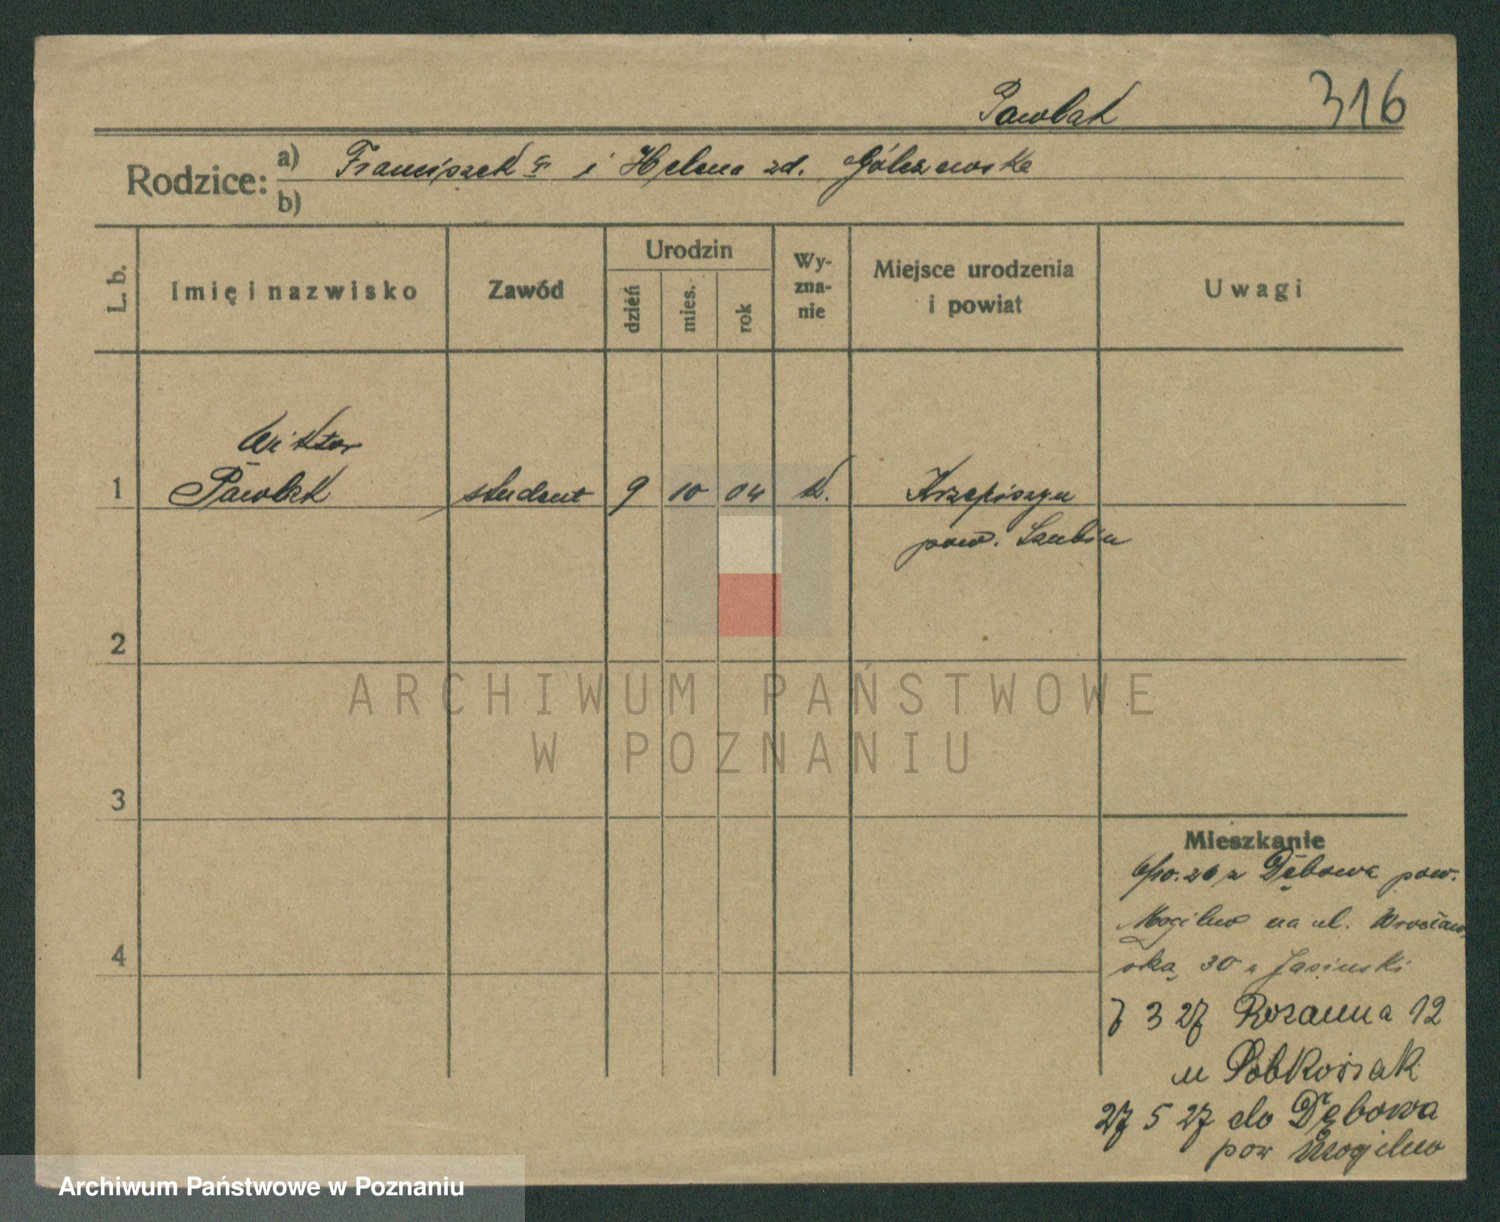 Pawlak 316
Rodzice: a) Franciszek i Helena zd. Gólczewska
b)
L. b. Imię i nazwisko Zawód Urodzin dzień mies. rok Wyznanie Miejsce urodzenia i powiat Uwagi
Wiktor
1 Pawlak student 9 10 04 k. Krzepiszyn
pow. Szubin
2
ARCHIWUM PAŃSTWOWE
W POZNANIU
3
Mieszkanie
6/10.26 z Dębowa pow.
Mogilno na ul. Wrocław
4
ska 30 u Jasinski
7 3 27 Rózanna 12
u
27 5 27 do Dębowa
pow Mogilno
Archiwum Państwowe w Poznaniu